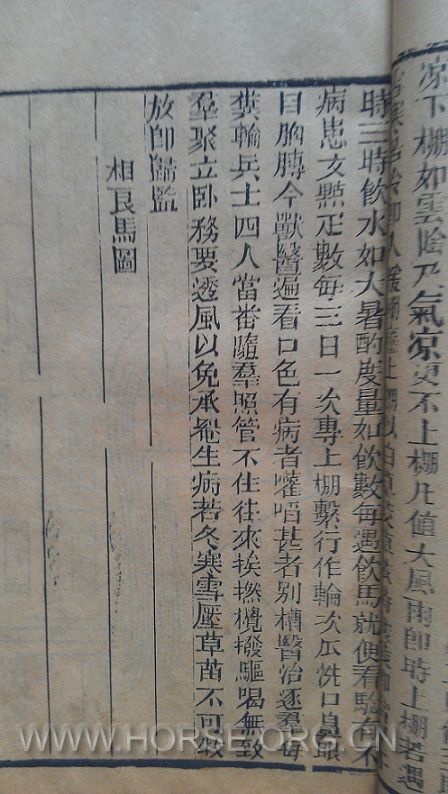 涼下棚如雲陰乃氣涼更不上棚凡值大風雨即時上棚若遇
時三時飲水如大暑酌度量加飲數每遇飲馬就便看驗有不
病患支點疋數每三日一次專上棚繫行作輪次瓜洗口鼻眼
目胸膊令獸醫遍看口色有病者灌啗甚者別槽醫治逐羣每
糞輪兵士四人當番隨羣照管不住往來挨撚攪撥驅喝無致
羣聚立臥務要透風以免承羣生病若冬寒雪壓草苗不可牧
放即歸監
相良馬圖
WWW.HORSE.ORG.CN